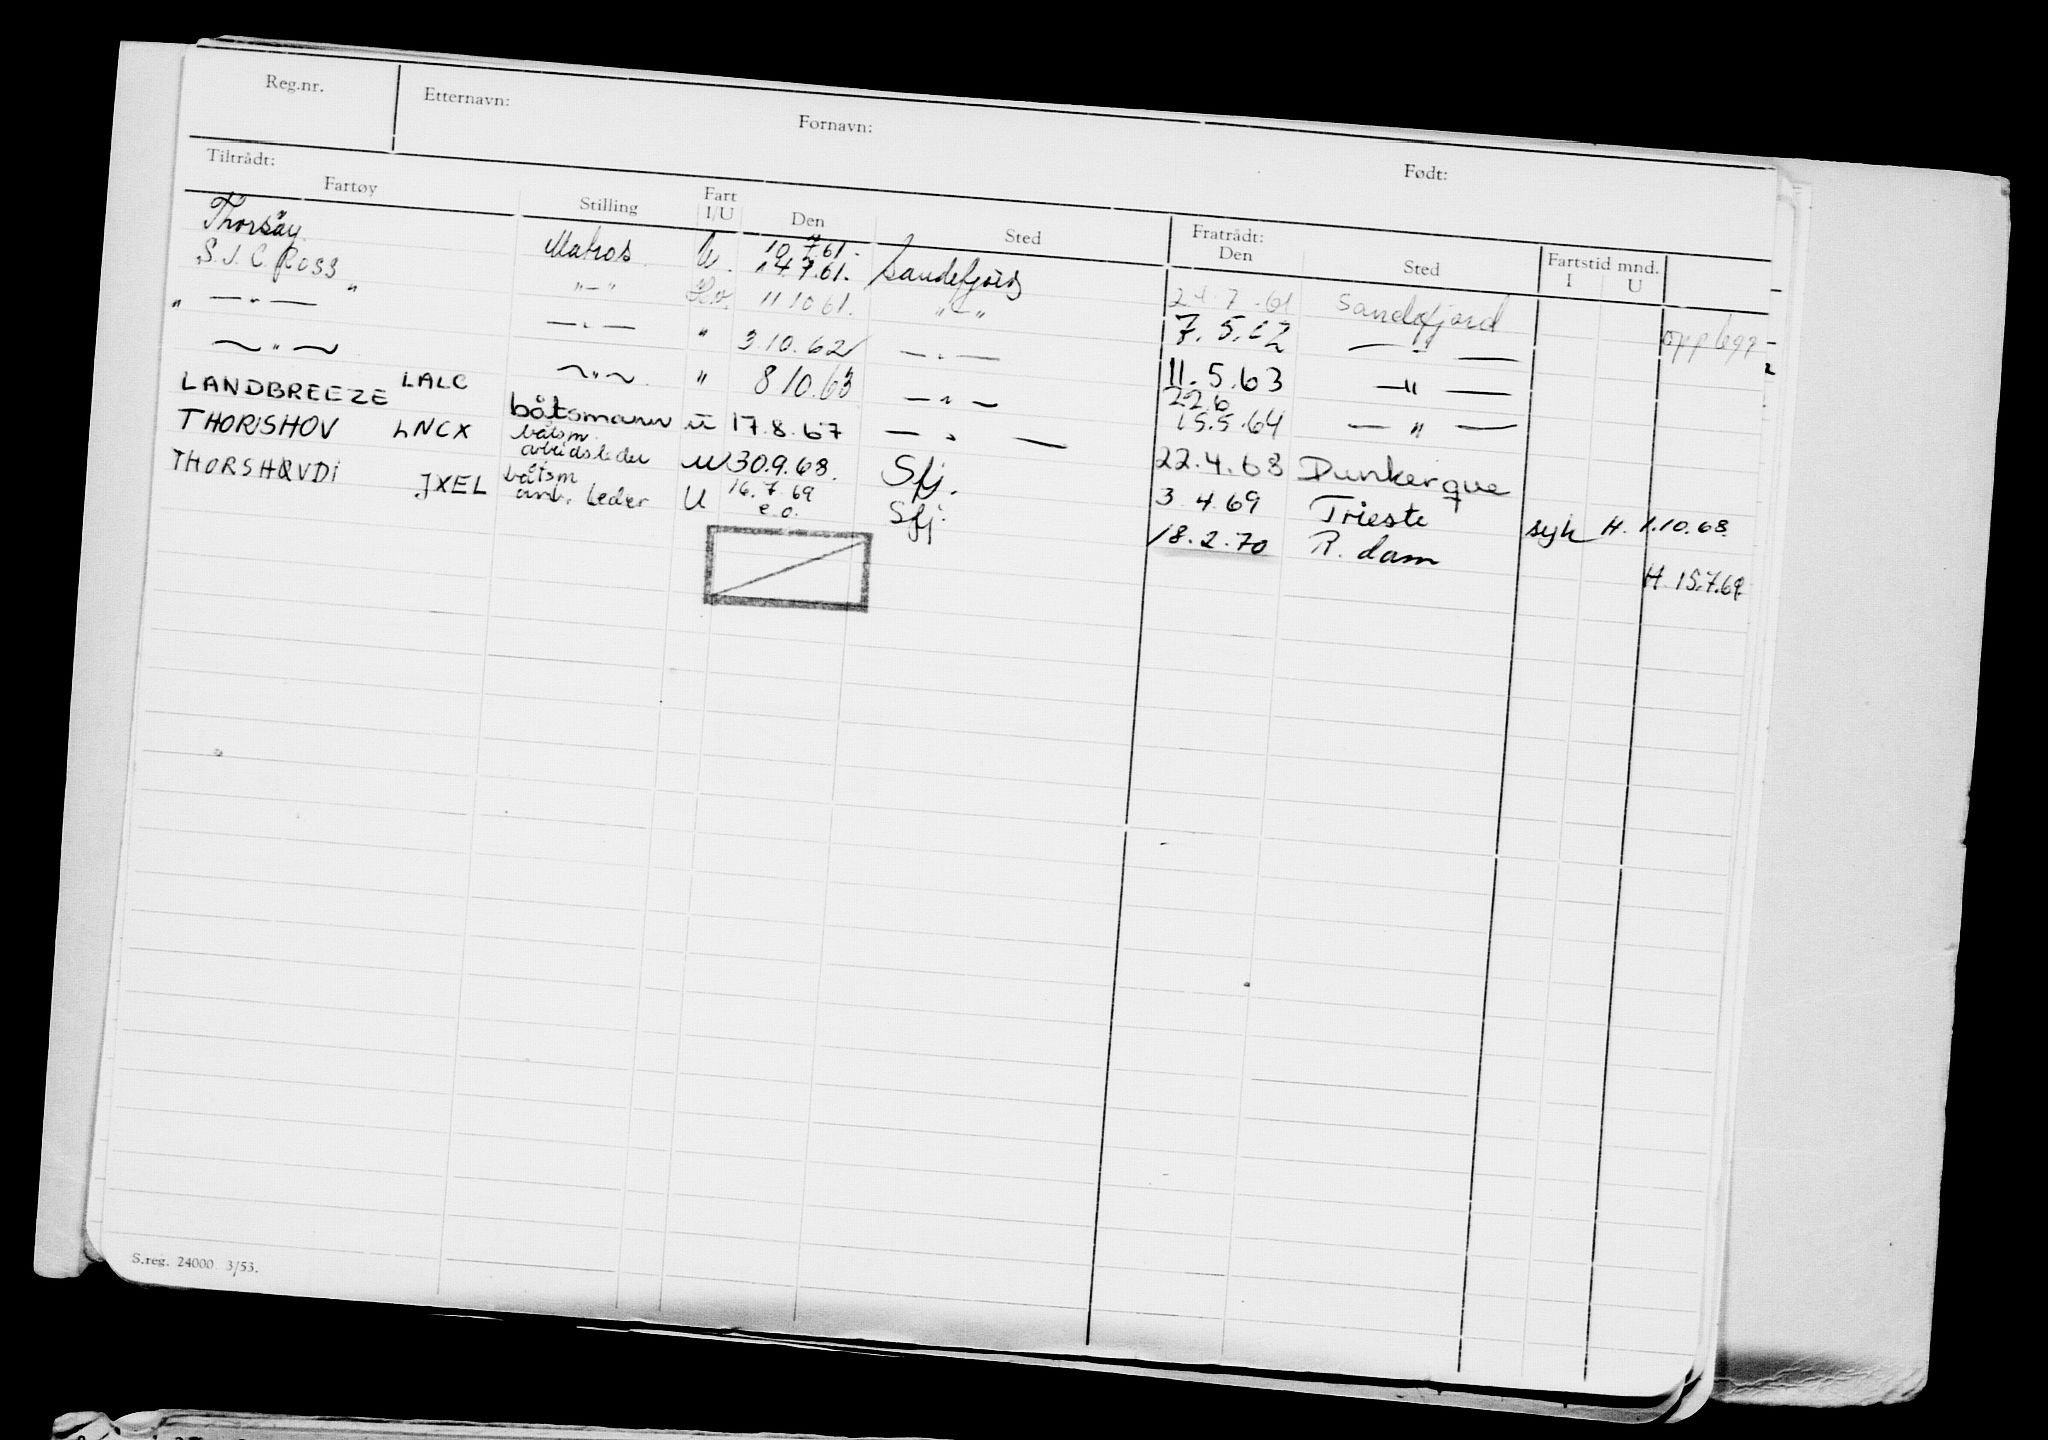 Reg.nr. Etternavn: Fornavn: Født:
Tiltrådt: Fratrådt:
Fartøy Stilling Fart I/U Den Sted Den Sted Fartstid mnd. I U
Thorsøy Matros U. 10.7.61. 14.7.61. Sandefjord 24.7.61 Sandefjord opplegg
S.J.C. Ross " "—" 11 10 61. "—" 7.5.62 — " —
" — " — — " — " 3.10.62 — " — 11.5.63 — " —
— " — — " — " 8 10.63 — " — 22.6 15.5.64 — " —
LANDBREEZE LALC båtsmann u 17.8.67 — " — 22.4.68 Dunkerque
THORSHOV LNCX båtsm. arbeidsleder u 30.9.68. Sfj. 3.4.69 Trieste syk H. 1.10.68
THORSHØVDI JXEL båtsm arb. leder U 16.7.69 e.o. Sfj. 18.2.70 R.dam H. 15.7.69
S.reg. 24000 3/53.